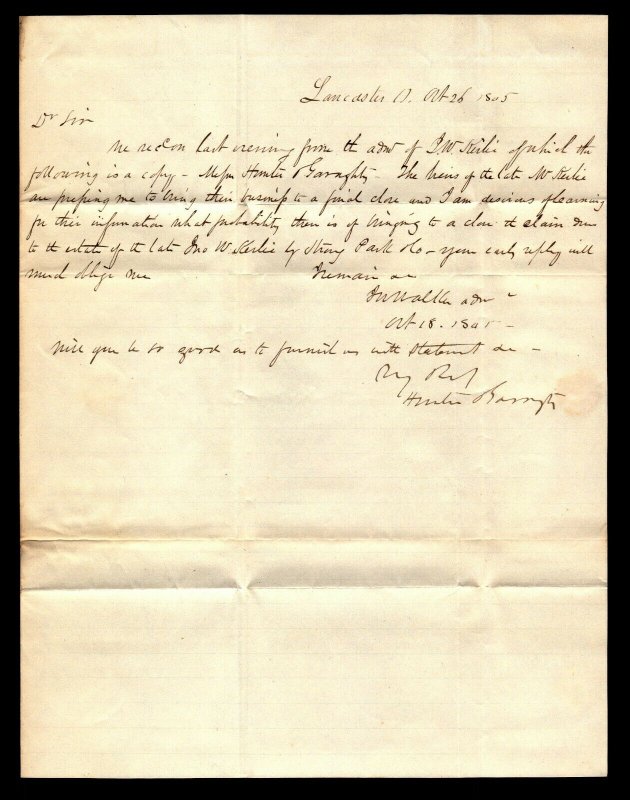 Lancaster O. Oct 26 1845
Dr Sir
We recd on last evening from the admr of J. W. Kerlie of which the
following is a copy - Messrs Hunter & Garaghty - The heirs of the late Mr Kerlie
are pressing me to bring their business to a final close and I am desirous of learning
for their information what probability there is of bringing to a close the claim due
to the estate of the late Jno W. Kerlie by Strong Park & Co - your early reply will
much oblige me I remain &c
Walker admr
Oct 18. 1845 -
Will you be so good as to furnish us with statement &c -
Resp
Hunter & Garaghty